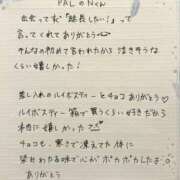 PALのNくん
出会って即「延長したい!」って
言ってくれてありがとう
そんなの初めて言われたから 泣きそうな
くらい嬉しかった!
差し入れのルイボスティーとチョコありがとう
ルイボスティー 箱で買うくらい好きだから
本当に嬉しかった
チョコも、寒さで凍えてた体に
染みわたる味で心がポカポカしたま
ありがとう